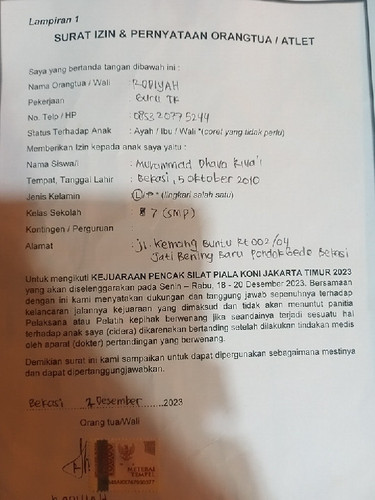 Lampiran 1
SURAT IZIN & PERNYATAAN ORANGTUA / ATLET
Saya yang bertanda tangan dibawah ini :
Nama Orangtua / Wali : RODIYAH
Pekerjaan : Guru TK
No. Telp / HP : 085320775244
Status Terhadap Anak : Ayah / Ibu / Wali *(coret yang tidak perlu)
Memberikan Izin kepada anak saya yaitu :
Nama Siswa/i : Muhammad Dhava
Tempat, Tanggal Lahir : Bekasi, 5 Oktober 2010
Jenis Kelamin : L / P * (lingkari salah satu)
Kelas Sekolah : 7 (SMP)
Kontingen / Perguruan :
Alamat : Jl. Kemang Buntu Rt 002/04
Jati Bening Baru Pondok Gede Bekasi
Untuk mengikuti KEJUARAAN PENCAK SILAT PIALA KONI JAKARTA TIMUR 2023
yang akan diselenggarakan pada Senin – Rabu, 18 - 20 Desember 2023. Bersamaan
dengan ini kami menyatakan dukungan dan tanggung jawab sepenuhnya terhadap
kelancaran jalannya kejuaraan yang dimaksud dan tidak akan menuntut panitia
Pelaksana atau Pelatih kepihak berwenang jika seandainya terjadi sesuatu hal
terhadap anak saya (cidera) dikarenakan bertanding setelah dilakukan tindakan medis
oleh aparat (dokter) pertandingan yang berwenang.
Demikian surat ini kami sampaikan untuk dapat dipergunakan sebagaimana mestinya
dan dapat dipertanggungjawabkan.
Bekasi 2 Desember 2023
Orang tua/Wali
METERAI
TEMPEL